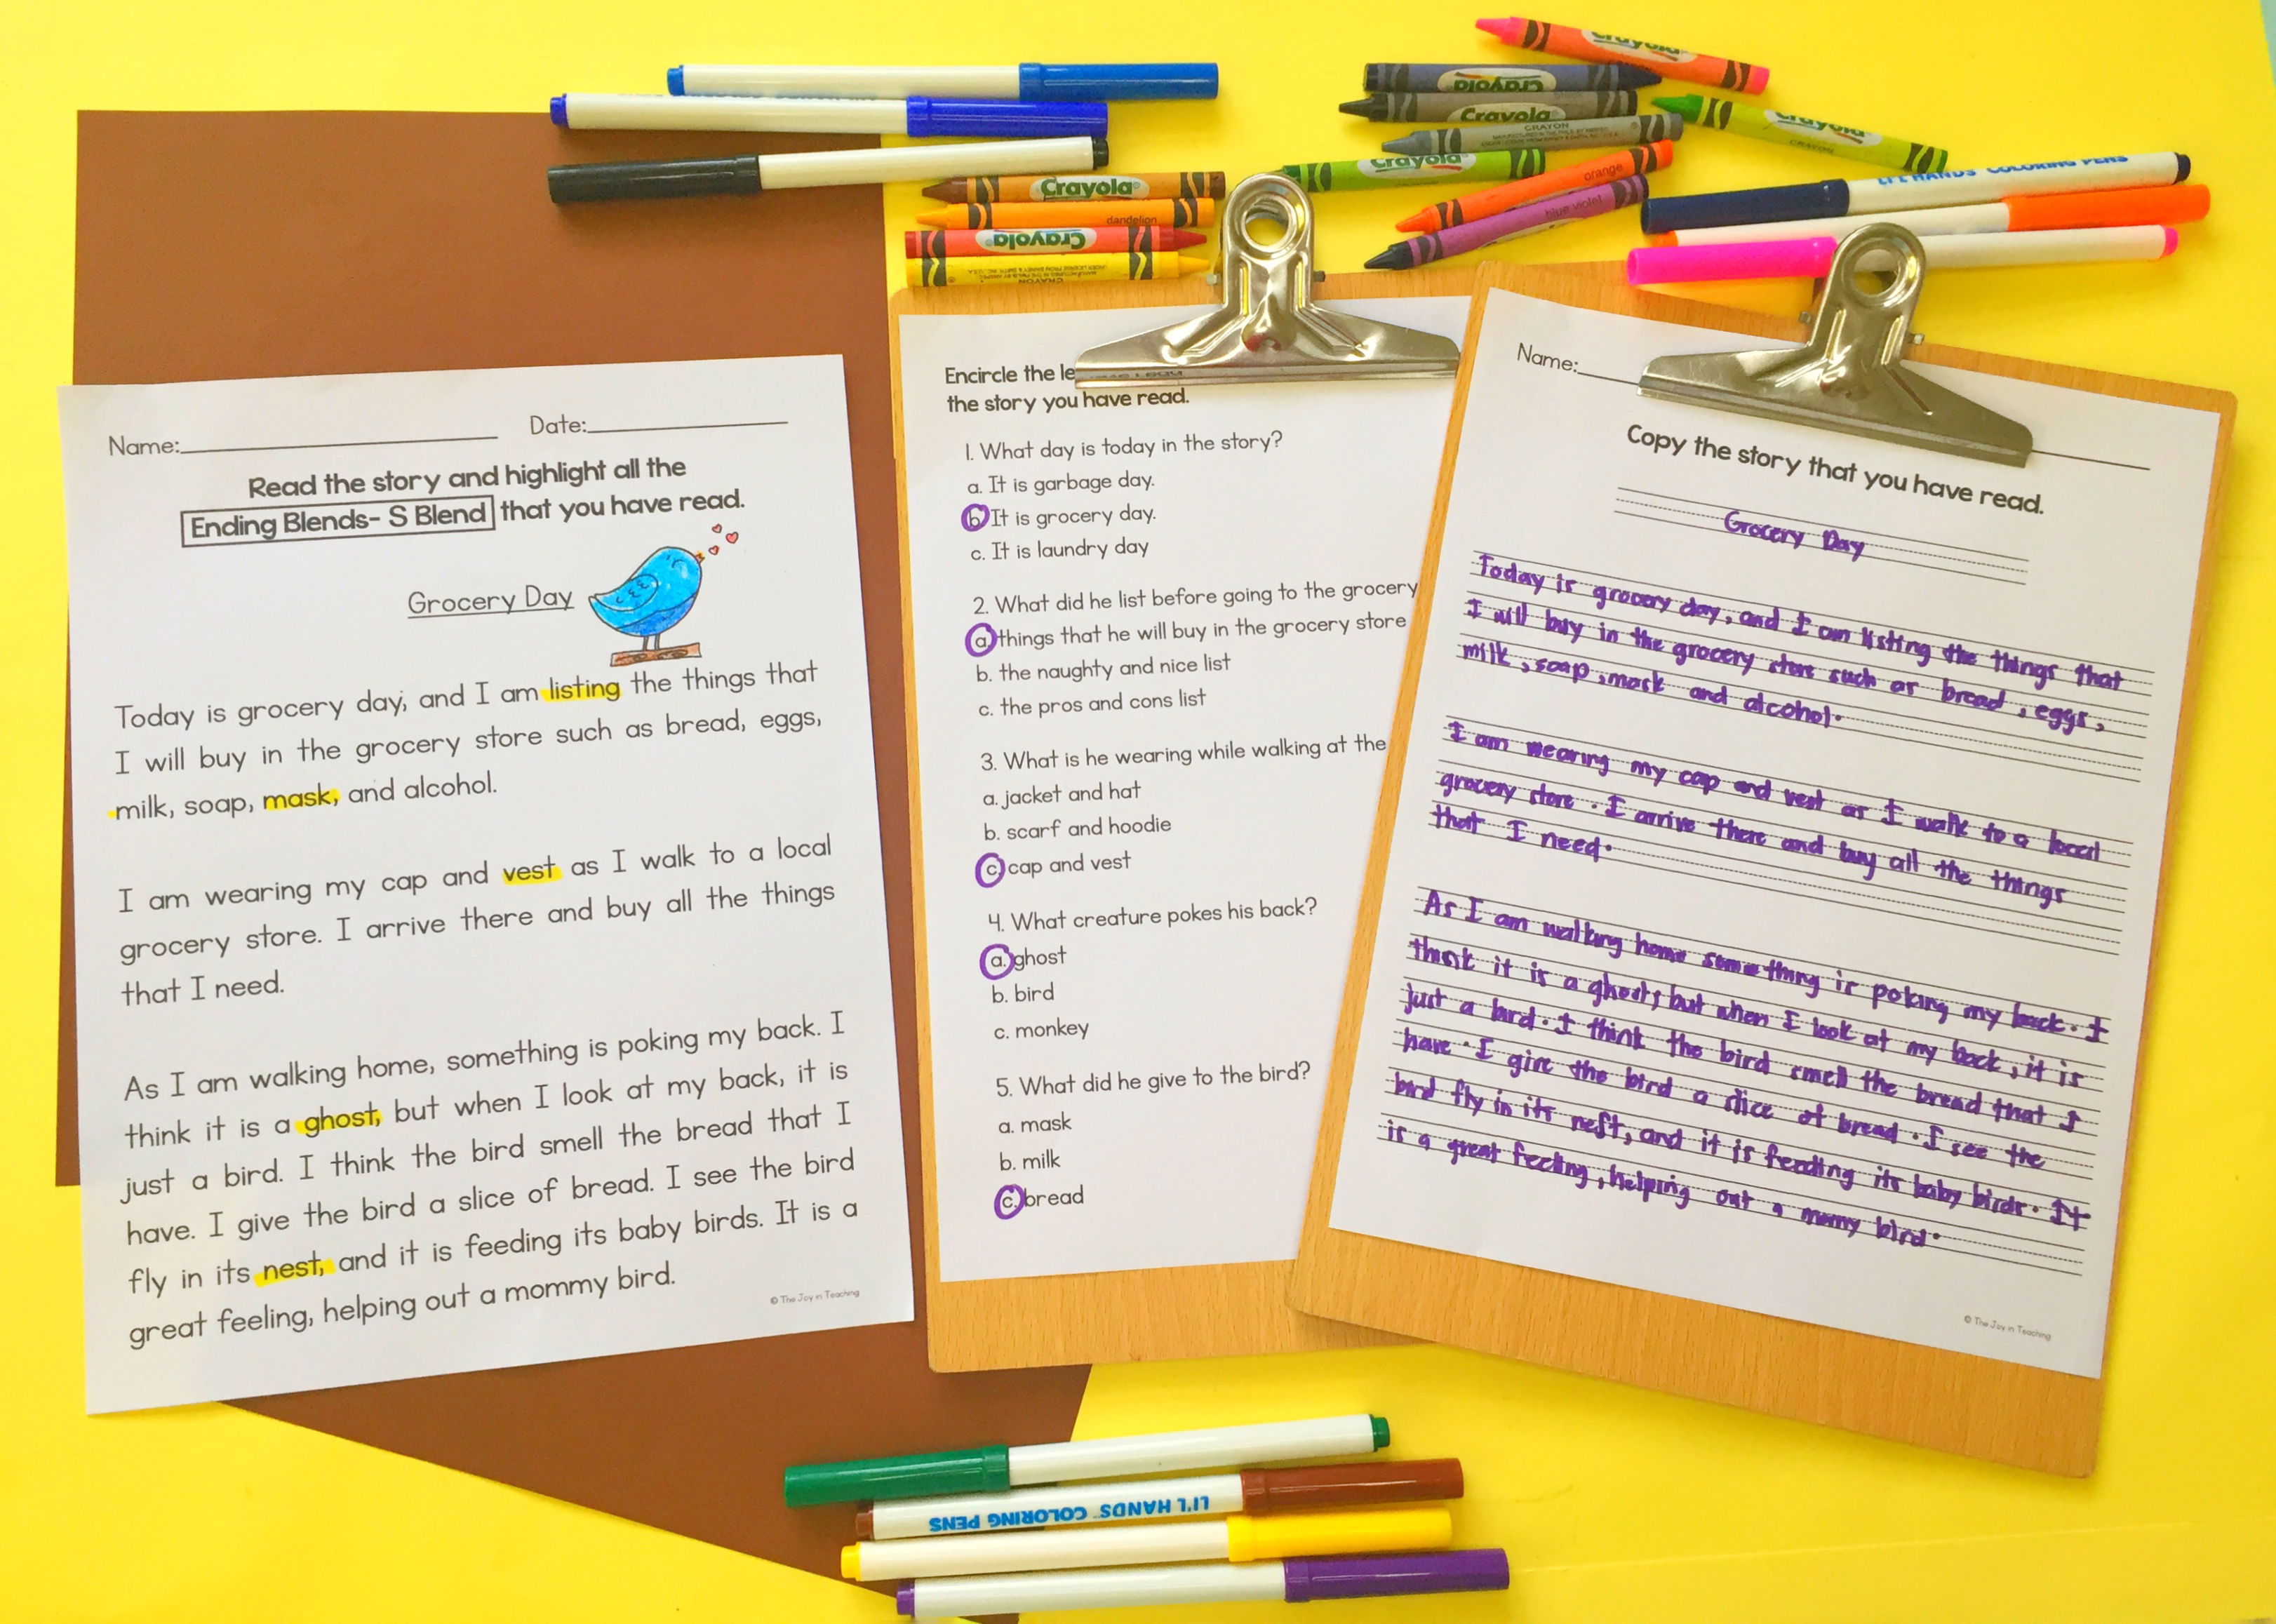 Crayola
Crayola
Crayola
CRAYON
Crayola
CRAYON
Crayola
orange
blue violet
LI'L HANDS COLORING PENS
Crayola
dandelion
Crayola
CRAYON
Name:
Date:
Read the story and highlight all the
Ending Blends- S Blend that you have read.
Grocery Day
Today is grocery day, and I am listing the things that
I will buy in the grocery store such as bread, eggs,
milk, soap, mask, and alcohol.
I am wearing my cap and vest as I walk to a local
grocery store. I arrive there and buy all the things
that I need.
As I am walking home, something is poking my back. I
think it is a ghost, but when I look at my back, it is
just a bird. I think the bird smell the bread that I
have. I give the bird a slice of bread. I see the bird
fly in its nest, and it is feeding its baby birds. It is a
great feeling, helping out a mommy bird.
© The Joy in Teaching
Encircle the le
the story you have read.
1. What day is today in the story?
a. It is garbage day.
b. It is grocery day.
c. It is laundry day
2. What did he list before going to the grocery
a. things that he will buy in the grocery store
b. the naughty and nice list
c. the pros and cons list
3. What is he wearing while walking at the
a. jacket and hat
b. scarf and hoodie
c. cap and vest
4. What creature pokes his back?
a. ghost
b. bird
c. monkey
5. What did he give to the bird?
a. mask
b. milk
c. bread
Name:
Copy the story that you have read.
Grocery Day
Today is grocery day, and I am listing the things that
I will buy in the grocery store such as bread, eggs,
milk, soap, mask and alcohol.
I am wearing my cap and vest as I walk to a local
grocery store. I arrive there and buy all the things
that I need.
As I am walking home something is poking my back. I
think it is a ghost, but when I look at my back, it is
just a bird. I think the bird smell the bread that I
have. I give the bird a slice of bread. I see the
bird fly in its nest, and it is feeding its baby birds. It
is a great feeling, helping out a momy bird.
© The Joy in Teaching
LI'L HANDS COLORING PENS